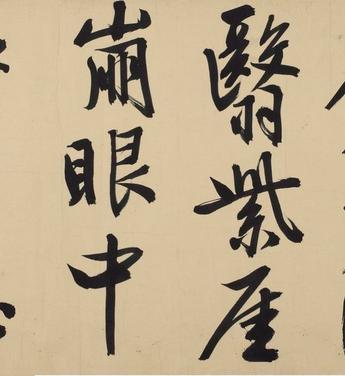 翳紫厓
崩眼中